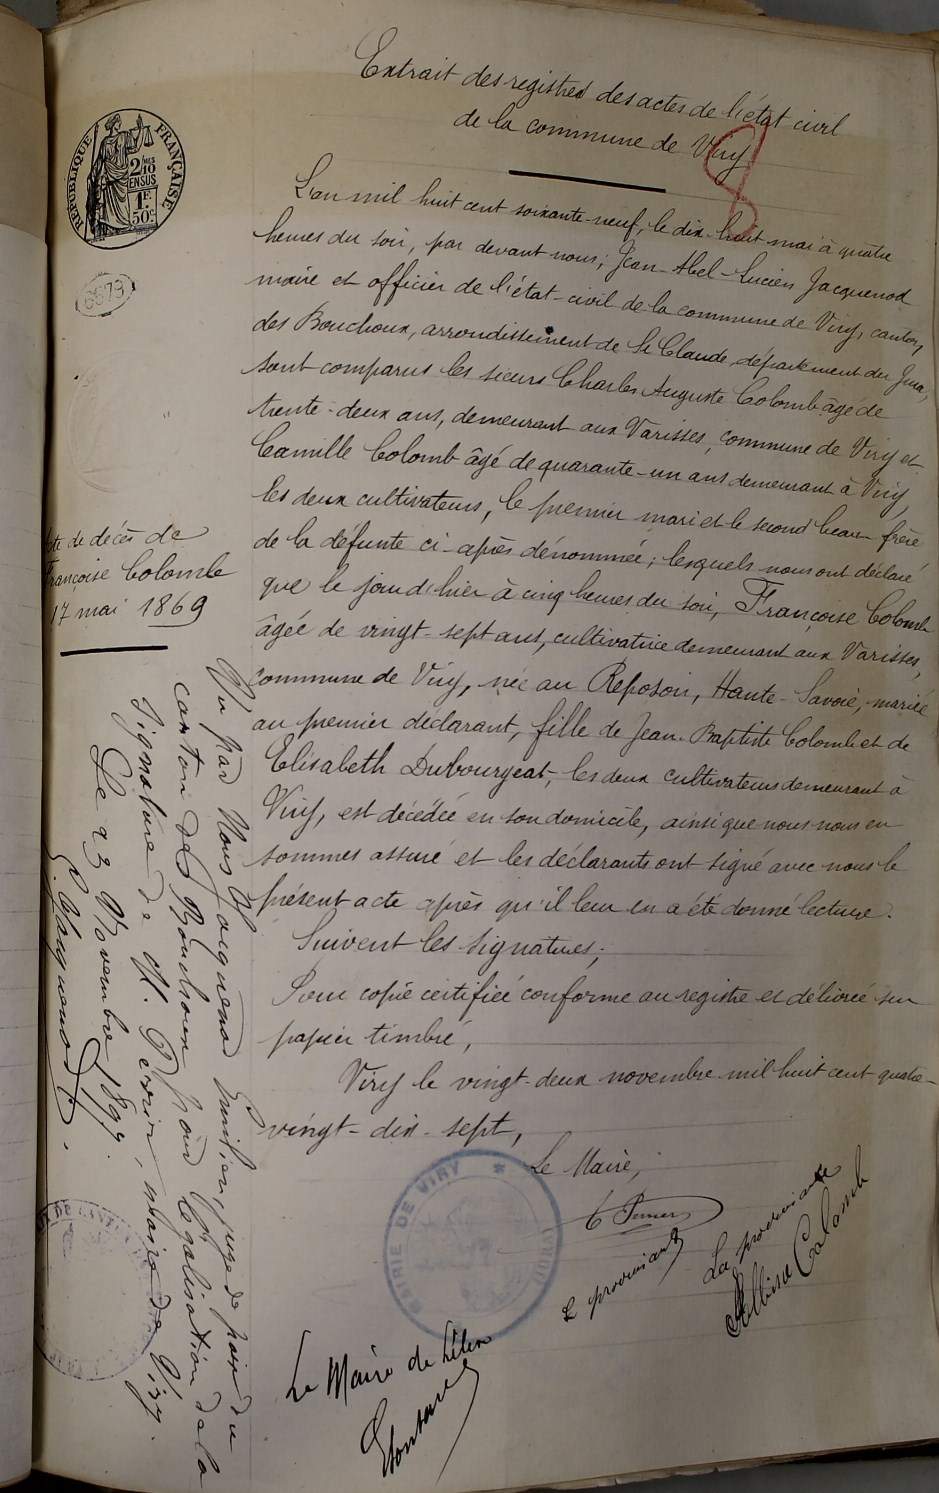 Extrait des registres des actes de l'état civil
de la commune de Viry
RÉPUBLIQUE FRANÇAISE
2/10
EN SUS
1F.
50c.
6573
L'an mil huit cent soixante-neuf, le dix-huit mai à quatre
heures du soir, par devant nous, Jean-Abel-Lucien Jacquenod
maire et officier de l'état-civil de la commune de Viry, canton
des Bouchoux, arrondissement de St Claude, département du Jura,
sont comparus les sieurs Charles Auguste Colomb âgé de
trente-deux ans, demeurant aux Varisses, commune de Viry et
Camille Colomb âgé de quarante-un ans demeurant à Viry
les deux cultivateurs, le premier mari et le second beau-frère
de la défunte ci-après dénommée; lesquels nous ont déclaré
que le jour d'hier à cinq heures du soir, Françoise Colomb
âgée de vingt-sept ans, cultivatrice demeurant aux Varisses,
commune de Viry, née au Reposoir, Haute-Savoie, mariée
au premier déclarant, fille de Jean-Baptiste Colomb et de
Elisabeth Dubourgeat, les deux cultivateurs demeurant à
Viry, est décédée en son domicile, ainsi que nous nous en
sommes assuré et les déclarants ont signé avec nous le
présent acte après qu'il leur en a été donné lecture.
Suivent les signatures;
Pour copie certifiée conforme au registre et délivrée sur
papier timbré,
Viry le vingt-deux novembre mil huit cent quatre-
vingt-dix-sept,
Le Maire,
MAIRIE DE VIRY
(JURA)
Le Maire de Lélex
La procuriante
Colomb
cte de décès de
Françoise Colomb
17 mai 1869
Vu par Nous Jacquenod Emilien, juge de paix du
canton des Bouchoux pour légalisation de la
signature de M. Perrier, maire de Viry.
Le 23 Novembre 1897.
E. Jacquenod